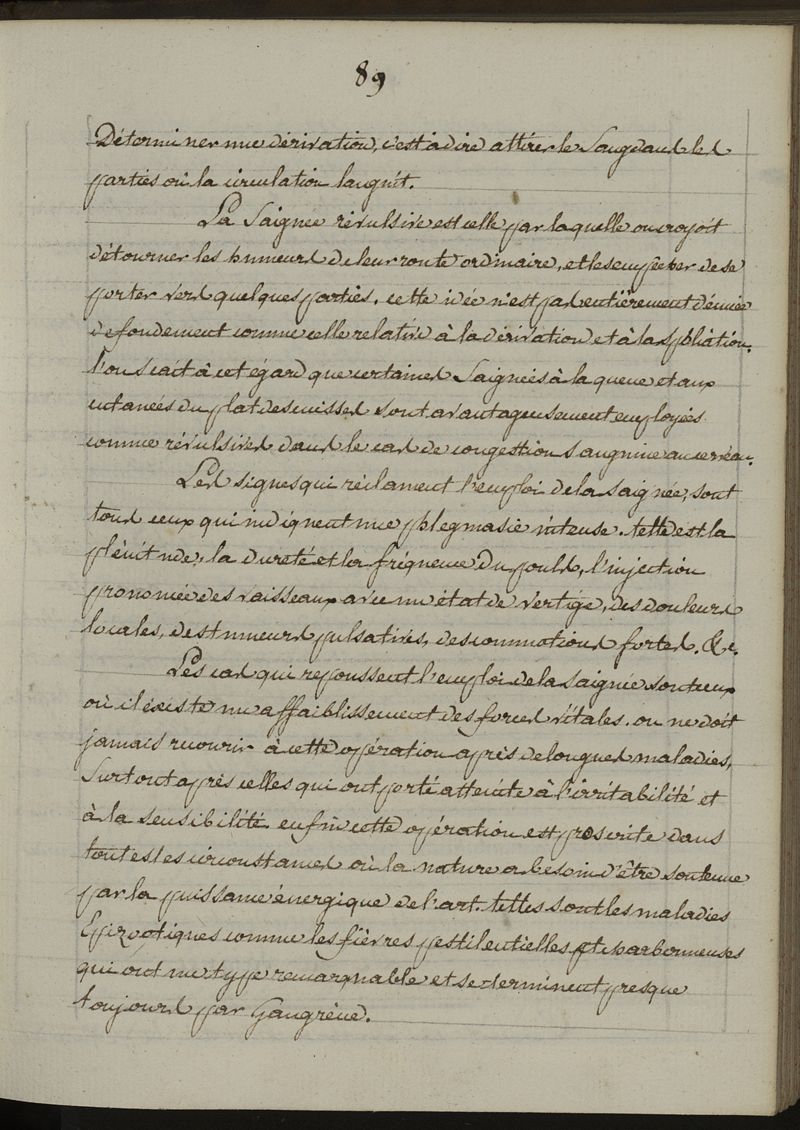 89
Déterminer une dérivation, c'est à dire attirer le Sang dans les
parties où la circulation languit.
La Saignée révulsive est celle par laquelle on croyoit
détourner les humeurs de leur route ordinaire, et les empecher de se
porter vers quelques parties. cette idée n'est pas entièrement dénuée
de fondement comme celle relative à la dérivation et à la spoliation.
l'on scait à cet égard que certaines Saignées à la queue et aux
cutanées du plat des cuisses sont avantageusement employées
comme révulsives dans le cas de congestion sanguine au cerveau.
Les signes qui réclament l'emploi de la saignée, sont
tous ceux qui indiquent une phlegmasie intense. telle est la
plénitude, la dureté et la fréquence du pouls, l'injection
prononcée des vaisseaux avec un état de vertige, des douleurs
locales, des tumeurs pulsatives, des commotions fortes. &c.
Les cas qui repoussent l'emploi de la saignée sont ceux
où il éxiste un affaiblissement des forces vitales. on ne doit
jamais recourir à cette opération après de longues maladies,
Surtout après celles qui ont porté atteinte à l'irritabilité et
à la sensibilité. enfin cette opération est proscrite dans
toutes les circonstances où la nature a besoin d'être soutenue
par la puissance énergique de l'art. telles sont les maladies
Epizootiques comme les fièvres pestilentielles et charbonneuses
qui ont un type remarquable et se terminent presque
toujours par Gangrène.